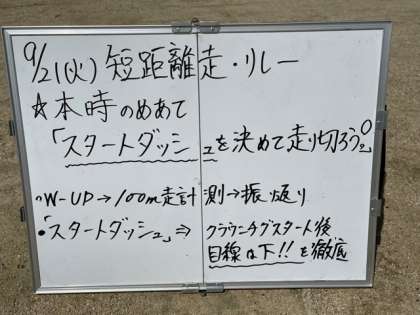 9/21(火) 短距離走・リレー
☆本時のめあて
「スタートダッシュを決めて走り切ろう。」
・W-UP→100m走計測→振り返り
・「スタートダッシュ」⇒ クラウチングスタート後
目線は下!! を徹底